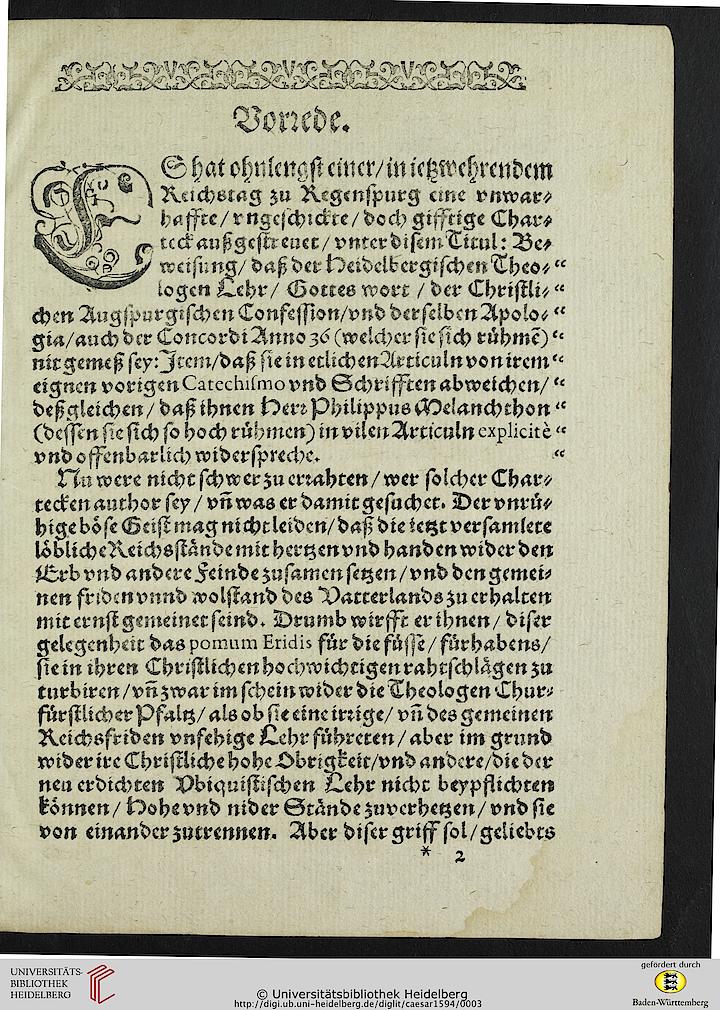 Vorrede.
ES hat ohnlengst einer/ in ietzwehrendem
Reichstag zu Regenspurg eine vnwar⸗
haffte/ vngeschickte/ doch gifftige Char⸗
teck außgestreuet/ vnter disem Titul: Be⸗
weisung/ daß der Heidelbergischen Theo⸗ “
logen Lehr/ Gottes wort / der Christli⸗ “
chen Augspurgischen Confession/ vnd derselben Apolo⸗ “
gia/ auch der Concordi Anno 36 (welcher sie sich rühmẽ) “
nit gemeß sey: Item/ daß sie in etlichen Articuln von irem “
eignen vorigen Catechismo vnd Schrifften abweichen/ “
deßgleichen/ daß ihnen Herr Philippus Melanchthon “
(dessen sie sich so hoch rühmen) in vilen Articuln explicitè “
vnd offenbarlich widerspreche. “
Nu were nicht schwer zu errahten/ wer solcher Char⸗
tecken author sey / vn̄ was er damit gesuchet. Der vnrü⸗
hige böse Geist mag nicht leiden/ daß die ietzt versamlete
löbliche Reichsstände mit hertzen vnd handen wider den
Erb vnd andere Feinde zusamen setzen/ vnd den gemei⸗
nen friden vnnd wolstand des Vatterlands zu erhalten
mit ernst gemeinet seind. Drumb wirfft er ihnen/ diser
gelegenheit das pomum Eridis für die füsse/ fürhabens/
sie in ihren Christlichen hochwichtigen rahtschlägen zu
turbiren/ vn̄ zwar im schein wider die Theologen Chur⸗
fürstlicher Pfaltz/ als ob sie eine irrige/ vn̄ des gemeinen
Reichsfriden vnfehige Lehr führeten/ aber im grund
wider ire Christliche hohe Obrigkeit/ vnd andere/ die der
neu erdichten Vbiquistischen Lehr nicht beypflichten
können/ Hohe vnd nider Stände zuverhetzen/ vnd sie
von einander zutrennen. Aber diser griff sol/ geliebts
* 2
UNIVERSITÄTS-
BIBLIOTHEK
HEIDELBERG
© Universitätsbibliothek Heidelberg
http://digi.ub.uni-heidelberg.de/diglit/caesar1594/0003
gefördert durch
Baden-Württemberg